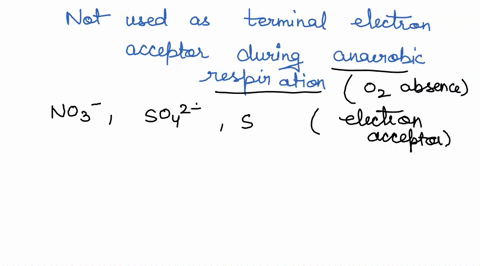 Not used as terminal electron
acceptor during anaerobic
respiration (O₂ absence)
NO₃⁻, SO₄²⁻, S (electron
acceptor)